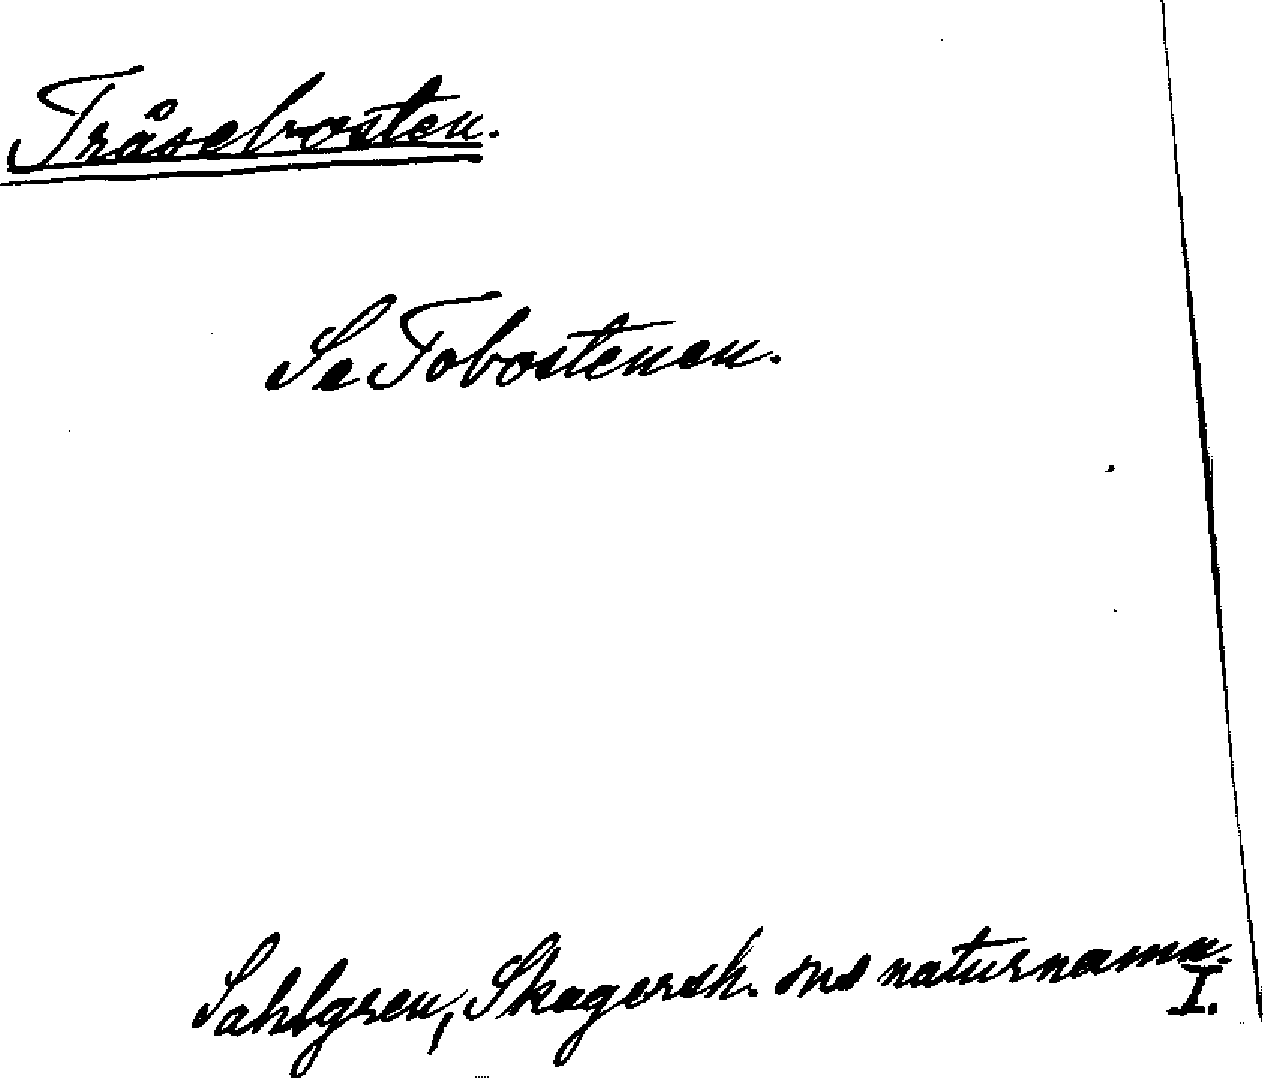 Tråsebosten.
Se Tobostenen.
Sahlgren, Skagersh. sns naturnamn.
I.